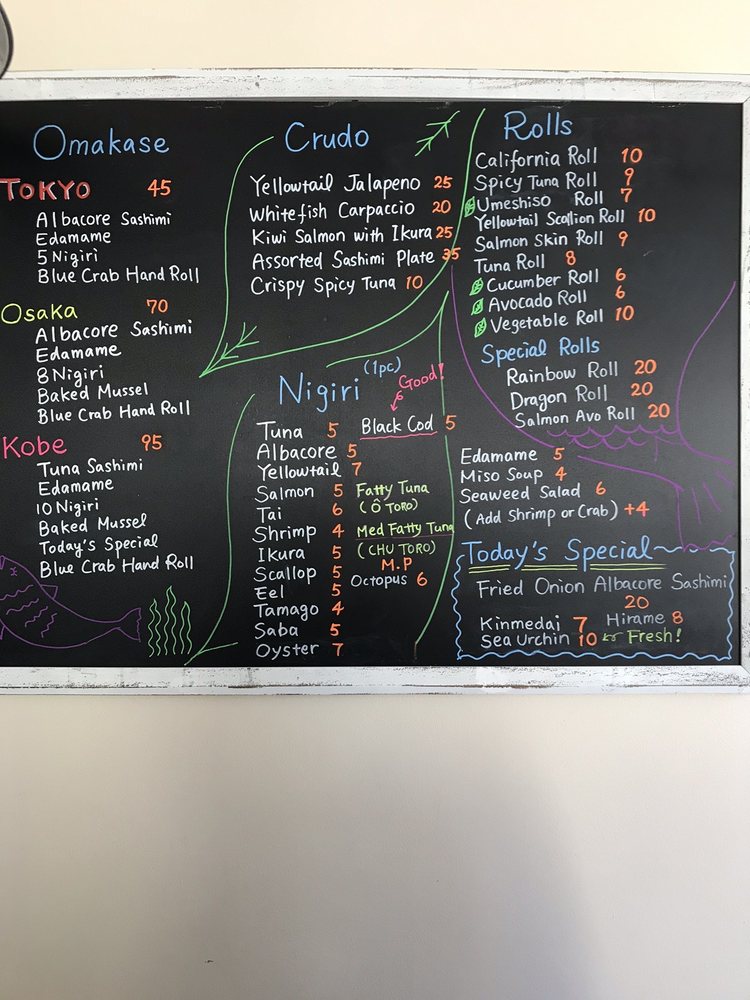 Omakase
TOKYO 45
Albacore Sashimi
Edamame
5 Nigiri
Blue Crab Hand Roll
Osaka 70
Albacore Sashimi
Edamame
8 Nigiri
Baked Mussel
Blue Crab Hand Roll
Kobe 95
Tuna Sashimi
Edamame
10 Nigiri
Baked Mussel
Today's Special
Blue Crab Hand Roll
Crudo
Yellowtail Jalapeno 25
Whitefish Carpaccio 20
Kiwi Salmon with Ikura 25
Assorted Sashimi Plate 35
Crispy Spicy Tuna 10
Nigiri (1pc)
Tuna 5
Albacore 5
Yellowtail 7
Salmon 5
Tai 6
Shrimp 4
Ikura 5
Scallop 5
Eel 5
Tamago 4
Saba 5
Oyster 7
Good!
Black Cod 5
Fatty Tuna
(Ō TORO)
Med Fatty Tuna
(CHU TORO)
M.P
Octopus 6
Rolls
California Roll 10
Spicy Tuna Roll 9
Umeshiso Roll 7
Yellowtail Scallion Roll 10
Salmon Skin Roll 9
Tuna Roll 8
Cucumber Roll 6
Avocado Roll 6
Vegetable Roll 10
Special Rolls
Rainbow Roll 20
Dragon Roll 20
Salmon Avo Roll 20
Edamame 5
Miso Soup 4
Seaweed Salad 6
(Add Shrimp or Crab) +4
Today's Special
Fried Onion Albacore Sashimi
20
Kinmedai 7 Hirame 8
Sea Urchin 10 Fresh!